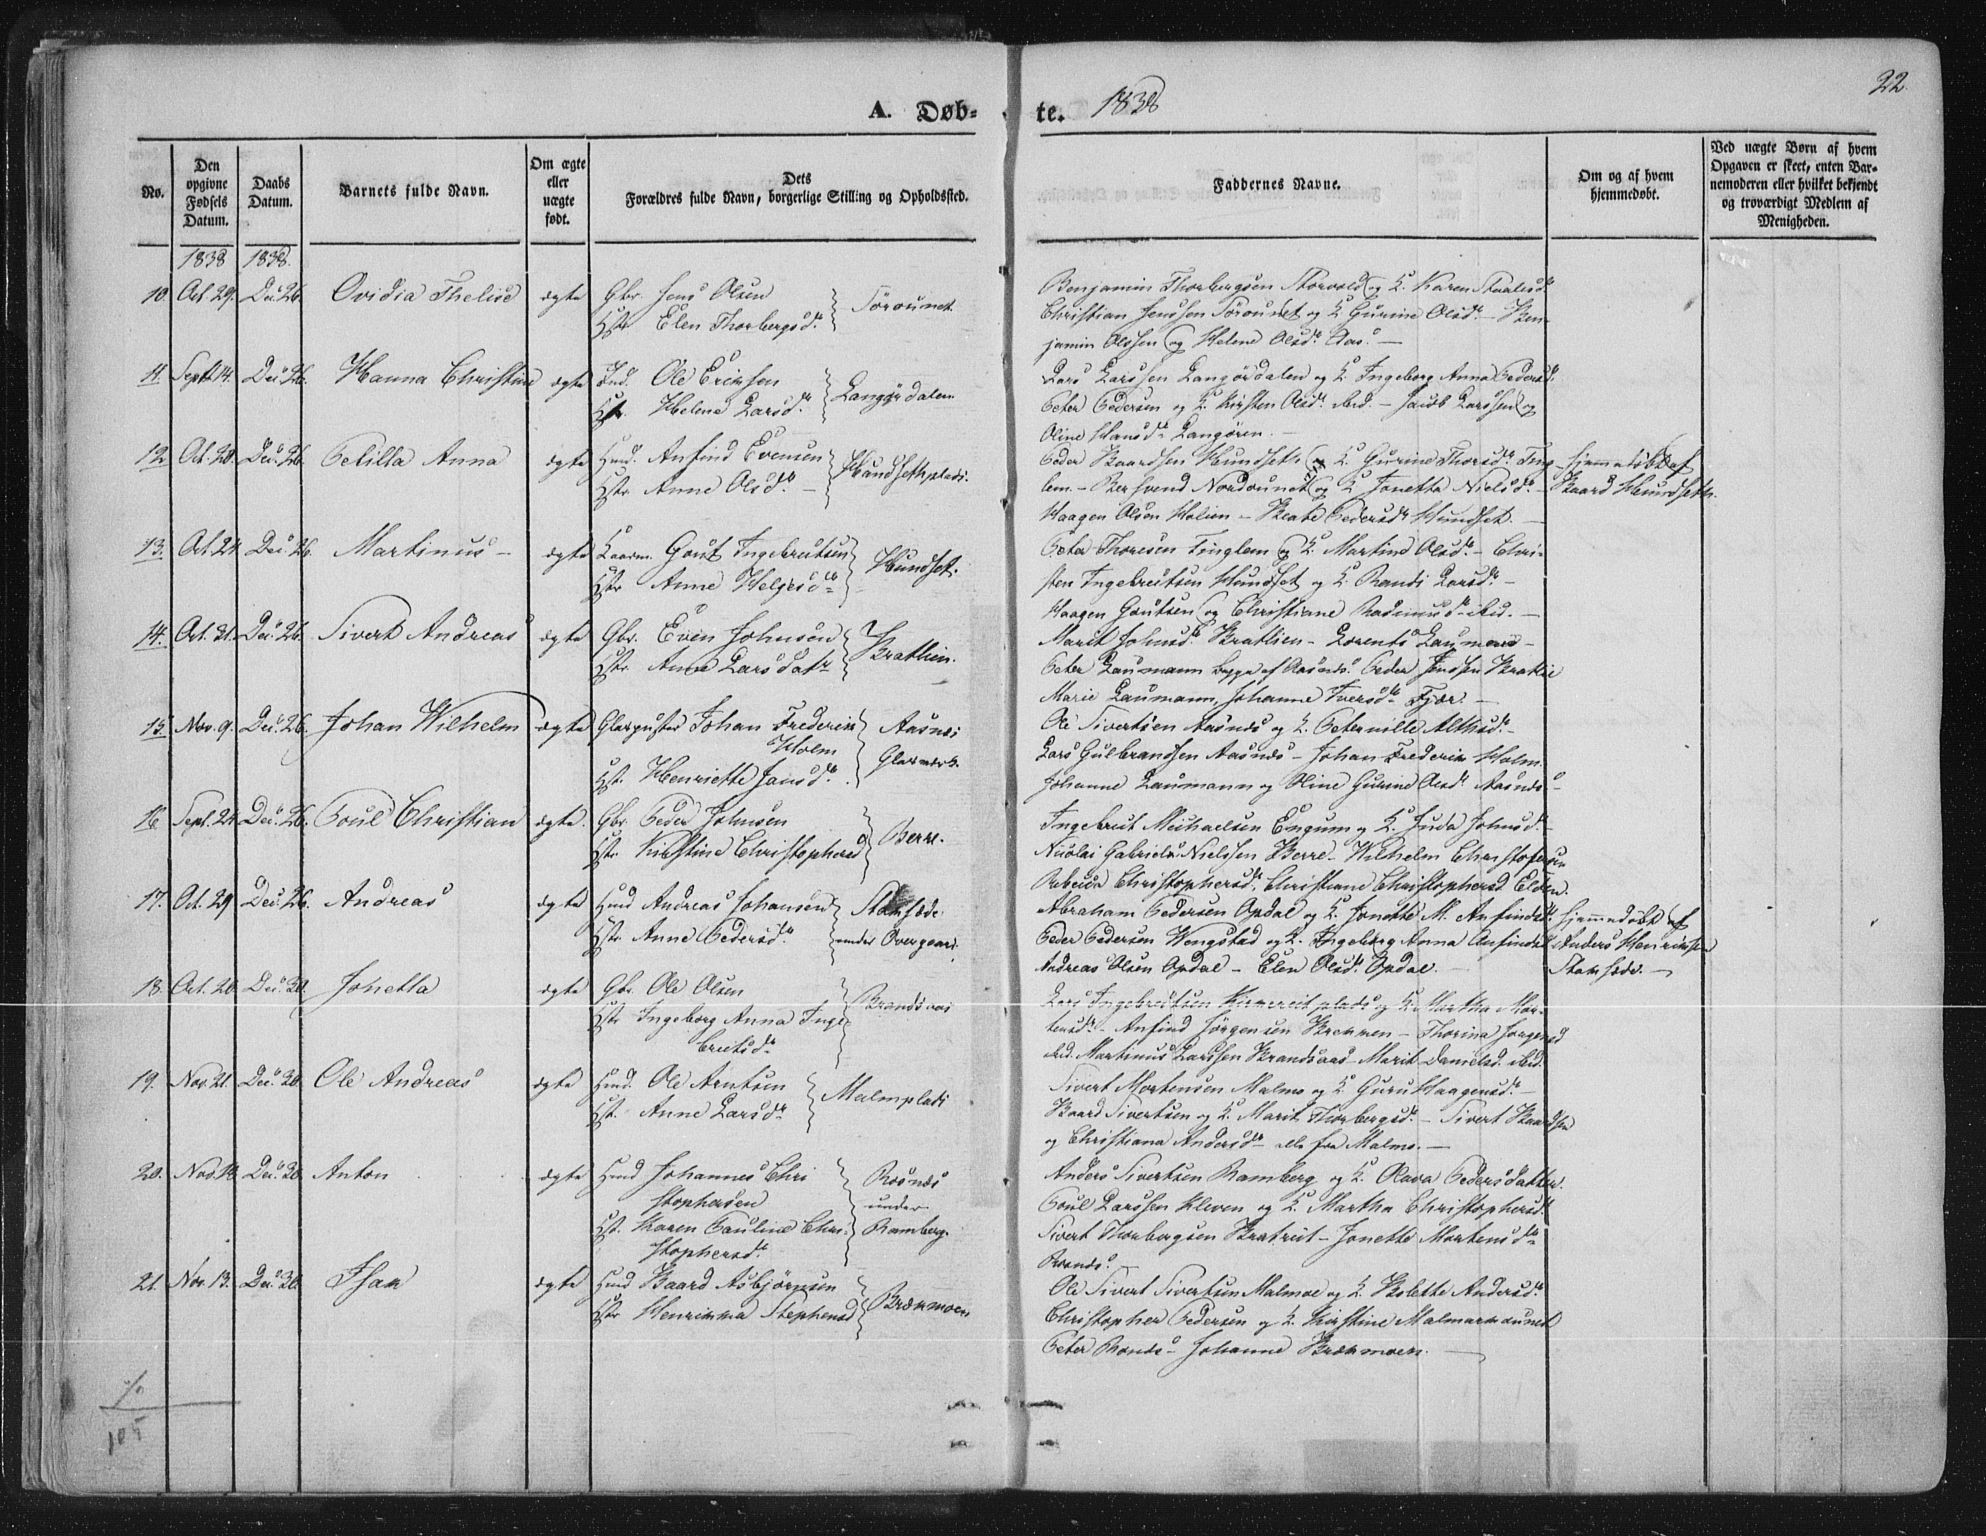 22.
A. Døb-te. 1838
No.
Den opgivne Fødsels Datum.
Daabs Datum.
Barnets fulde Navn.
Om ægte eller uægte født.
Dets Forældres fulde Navn, borgerlige Stilling og Opholdssted.
Faddernes Navne.
Om og af hvem hjemmedøbt.
Ved uægte Børn af hvem Opgaven er skeet, enten Barnemoderen eller hvilket bekjendt og troværdigt Medlem af Menigheden.
1838 1838.
10. Oct. 29. Dec. 26. Ovidia Thelise ægte Gbr. Jens Olsen
Hstr. Elen Thorbergsd.
Sörounet.
Benjamin Thorbergsen Storvold og K. Karen
Christian Jenssen Sörounet og K. Gurine Olsd. Ben-
jamin Olssen og Helene Olsd. Aas. —
11. Sept. 14. Dec. 26. Hanna Christine ægte Ind. Ole Ericsen
Hstr. Helene Larsd.
Langördalen
Lars Larssen Langördalen og K. Ingeborg Anna Pedersd.
Peter Pedersen og K. Kirsten Olsd. ibid. — Jacob Larssen og
Oline Hansd. Langören. —
12. Oct. 20. Dec. 26. Petilla Anna ægte Huusd. Anfind Evensen
Hstr. Anne Olsd. —
Hundsethplads.
Peder Baardsen Hundseth og K. Gurine Thorsd. Ting-
lem. — Bersvend Nordounet og K. Jonetta Nielsd. —
Haagen Olsen Holien — Beate Pedersd. Hundset. —
hjemmedöbt af
Baard Hundseth.
13. Oct. 24. Dec. 26. Martinus — ægte Kaarm. Gout Ingebretsen
Hstr. Anne Helgesd.
Hundset.
Peter Thoresen Tinglem og K. Martine Olsd. — Chri-
sten Ingebretsen Hundset og K. Randi Larsd. —
Haagen Goutsen og Christiane Rasmusd. ibid. —
14. Oct. 21. Dec. 26. Sivert Andreas ægte Gbr. Even Johnsen
Hstr. Anne Larsdatr
Bratlien.
Marit Johnsd. Bratlien — Lorents Laumann —
Peter Laumann begge af Aasnæs. Peder Jenssen Bratlie
Marie Laumann, Johanne Iversd. Fjær. —
15. Nov. 9. Dec. 26. Johan Wilhelm ægte Glaspuster Johan Frederik
Holm
Hst. Henriette Jansd.
Aasnæs
Glasværk.
Ole Sivertsen Aasnæs og K. Peternille
Lars Gulbrandsen Aasnæs — Johan Frederik Holm
Johanne Laumann og Stine Gurine Olsd. Aasnæs —
16 Sept. 24 Dec. 26. Poul Christian ægte. Gbr. Peder Johnsen
Hstr. Kirstine Christophersd
Berre.
Ingebret Michaelsen Engum og K. Juda Johnsd. —
Nicolai Gabriel Nielssen Berre. Wilhelm Christofersen
Rebecca Christophersd. Christiane Christophersd Elden.
17. Oct. 29 Dec. 26. Andreas ægte Huusd Andreas Johansen
Hstr. Anne Pedersd.
under Overgaard.
Abraham Pedersen Opdal og K. Jonette M. Anfindsd.
Peder Pedersen Wengstad og K. Ingeborg Anna Anfindsd.
Andreas Olsen Opdal — Elen Olsd. Opdal. —
hjemmedöbt af
Anders Henriksen
18. Oct. 20 Dec. 30. Jonetta ægte Gbr. Ole Olsen
Hstr. Ingeborg Anna Inge-
bretsd.
Brandsaas
Lars Ingebretsen plads og K. Martha Mor-
tensd. — Anfind Jörgensen Brekmen — Thorina Jorgensd
ibid. Martinus Larssen Brandsaas — Marit Danielsd. ibid.
19. Nov. 21. Dec. 30. Ole Andreas ægte Huusd. Ole Arntsen
Hst. Anne Larsd.
Malmplads
Sivert Mortensen Malmo og K. Guru Haagensd. —
Baard Sivertsen og K. Marit Thorbergsd. — Sivert Baardsen
og Christiana Andersd. alle fra Malmo. —
20. Nov. 10. Dec. 30. Anton ægte Huusd Johannes Chri
stophersen
Hst. Karen Pauline Chri-
stophersd.
Rosnæs
under
Ramberg.
Anders Sivertsen Ramberg og K. Olava Pedersdatter.
Poul Larssen Kleven og K. Martha Christophersd.
Sivert Thorbergsen Bratreit — Jonette Mortensd.
21. Nov. 13. Dec. 30. Isak ægte Huusd Baard Asbjörnsen
Hstr. Henrikka Stephensd
Brækmoen
Ole Sivert Sivertsen Malmoe og K. Bolette Andersd.
Christopher Pedersen og K. Kirstine Malmarkounet
Peter — Johanne Brækmoen. —
105